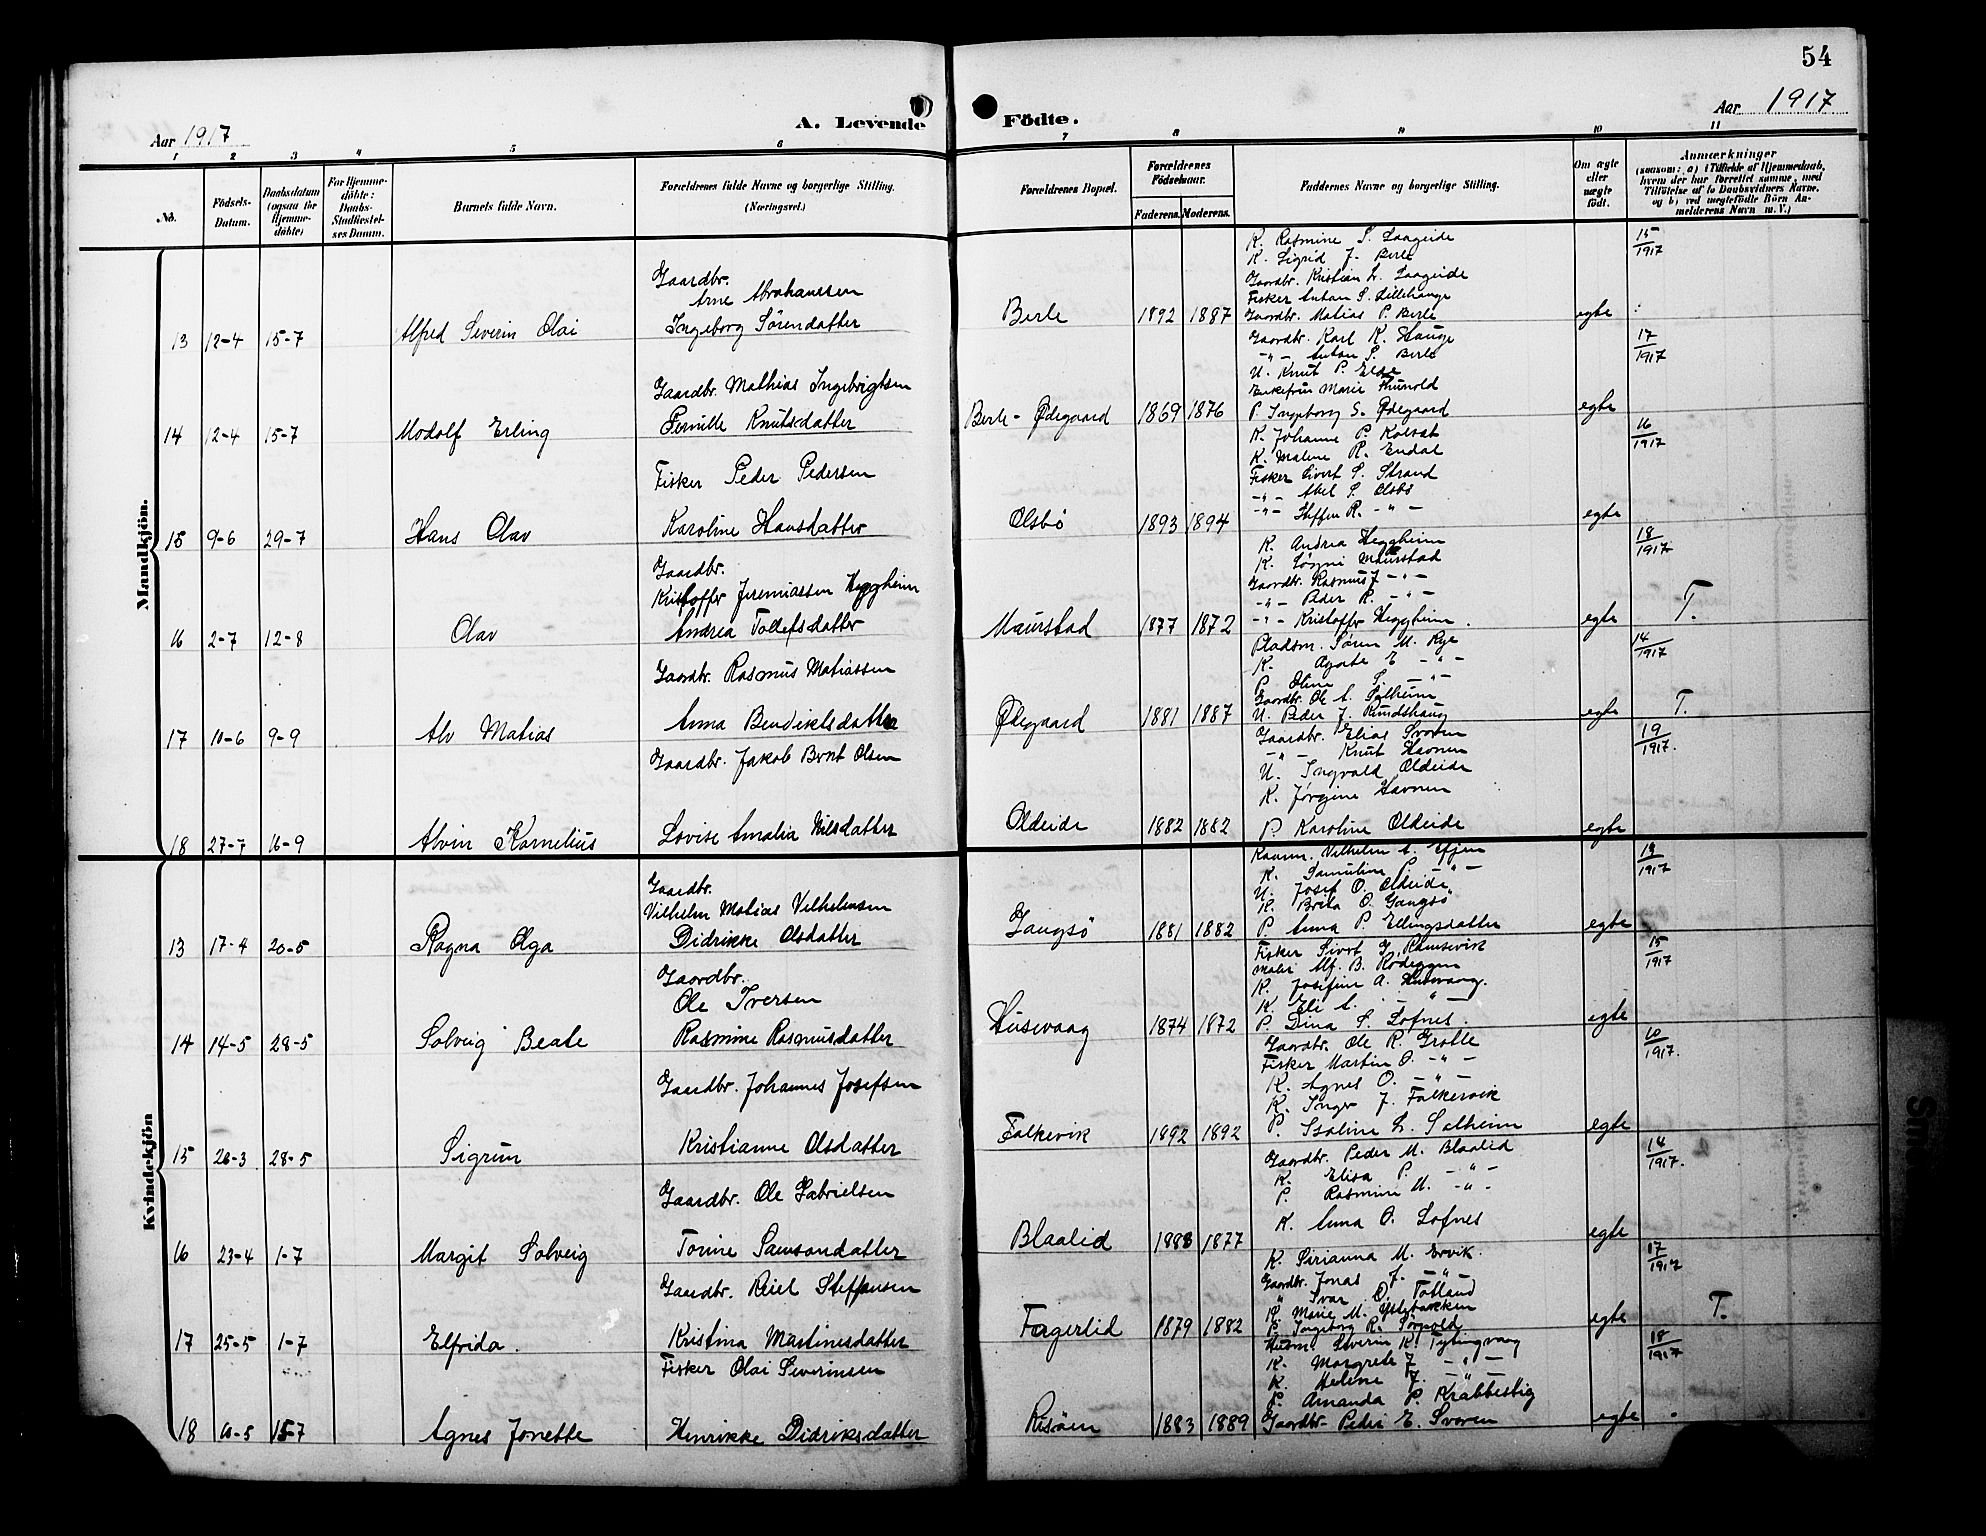 54
Aar 1917
A. Levende
Födte.
Aar 1917
1 2 3 4 5 6 7 8 9 10 11
No.
Födsels-Datum.
Daabsdatum (ogsaa for Hjemme-döbte)
For Hjemme-döbte: Daabs-Stadfæstel-ses Datum.
Barnets fulde Navn.
Forældrenes fulde Navne og borgerlige Stilling. (Næringsvei.)
Forældrenes Bopæl.
Forældrenes Födselsaar.
Faderens. Moderens.
Faddernes Navne og borgerlige Stilling.
Om ægte eller uægte födt.
Anmærkninger
(saasom: a) i Tilfælde af Hjemmedaab, hvem der har forrettet samme, med Tilföielse af to Daabsvidners Navne, og b) ved uægtefödte Börn An-melderens Navn m. V.)
Mandkjön.
13 12-4 15-7 Alfred Severin Olai
Gaardbr.
Arne Abrahamsen
Ingeborg Sörendatter
Berle 1892 1887
K. Rasmine S. Laageide
K. Sigrid J. Berle
Gaardbr. Kristian L. Laageide
Fisker Anton S. Lillehauge
Gaardbr. Matias P. Berle
egte
15/1917
14 12-4 15-7 Modolf Erling
Gaardbr. Mathias Ingebrigtsen
Pernille Knutsdatter
Berle-Ödegaard 1869 1876
Gaardbr. Karl K. Hauge
-"- Anton S. Berle
U. Knut P. Elde
Enkefru Marie Frunold
P. Ingeborg S. Ödegaard
egte
17/1917
15 9-6 29-7 Hans Olav
Fisker Peder Pedersen
Karoline Hansdatter
Olsbö 1893 1894
K. Johanne P. Kolset
K. Malene R. Endal
Fisker Sivert S. Strand
-"- Abel S. Olsbö
-"- Steffen R. -"-
egte
16/1917
16 2-7 12-8 Olav
Gaardbr.
Kristoffer Jeremiassen Heggheim
Andrea Tollefsdatter
Maurstad 1877 1872
K. Andrea Heggheim
K. Lögni Maurstad
Gaardbr. Rasmus J -"-
-"- Peder R. -"-
-"- Kristoffer Heggheim.
egte
18/1917
T.
17 10-6 9-9 Alv Matias
Gaardbr. Rasmus Matiassen
Anna Bendiktsdatter
Ödegaard 1881 1887
Pladsm. Sören M. Rye
K. Agate E -"-
P. Oline S. -"-
Gaardbr. Ole A. Solheim
U. Peder J. Rundshaug
egte
14/1917
T.
18 27-7 16-9 Alvin Kornelius
Gaardbr. Jakob Bernt Olsen
Lovise Amalia Nilsdatter
Oldeide 1882 1882
Gaardbr. Elias Svoren
-"- Knut Havnen
U. Ingvald Oldeide
K. Jörgine Havnen
P. Karoline Oldeide
egte
19/1917.
Kvindekjön
13 17-4 20-5 Ragna Olga
Gaardbr.
Vilhelm Matias Vilhelmsen
Didrikke Olsdatter
Gangsö 1881 1882
Vilhelm A.
K. Samuline P. -"-
U. Josef O. Oldeide
K. Brita O. Gangsö
P. Anna P. Ellingsdatter
egte
13/1917
14 14-5 28-5 Solveig Beate
Gaardbr.
Ole Iversen
Rasmine Rasmusdatter
Husevaag 1874 1872
Fisker Sivert G. Ramsevik
Maler Alf. B. Rödeggen
K. Josefine A. Husevaag.
K. Eli A. -"-
P. Dina S. Lofnes.
egte
15/1917
15 26-3 28-5 Sigrun
Gaardbr. Johannes Josefsen
Kristianne Olsdatter
Falkevik 1892 1892
Gaardbr. Ole R. Grotle
Fisker Martin O. -"-
K. Agnes O. -"-
K. Inger J. Falkevik
P. Isaline L. Solheim
egte
10/1917.
16 23-4 1-7 Margit Solveig
Gaardbr. Ole Gabrielsen
Torine Samsondatter
Blaalid 1888 1877
Gaardbr. Peder M. Blaalid
K. Elisa P. -"-
P. Rasmine M. -"-
K. Anna O. Lofnes
egte
14/1917.
17 25-5 1-7 Elfrida.
Gaardbr. Riel Steffensen
Kristina Martinesdatter
Fagerlid 1879 1882
K. Sirianna M. Ervik.
Gaardbr. Jonas J. -"-
" Ivar O. Totland
K. Marie M. Ytrebakken
P. Ingeborg R. Sörpold
egte
17/1917
T.
18 10-5 15-7 Agnes Jonette
Fisker Olai Severinsen
Henrikke Didriksdatter
Risöen 1883 1889
Husm. Severin K. Tytingvaag
K. Margrete J -"-
K. Helene J. -"-
P. Amanda P. Krabbestig
Gaardbr. Peder E. Svoren
egte
18/1917